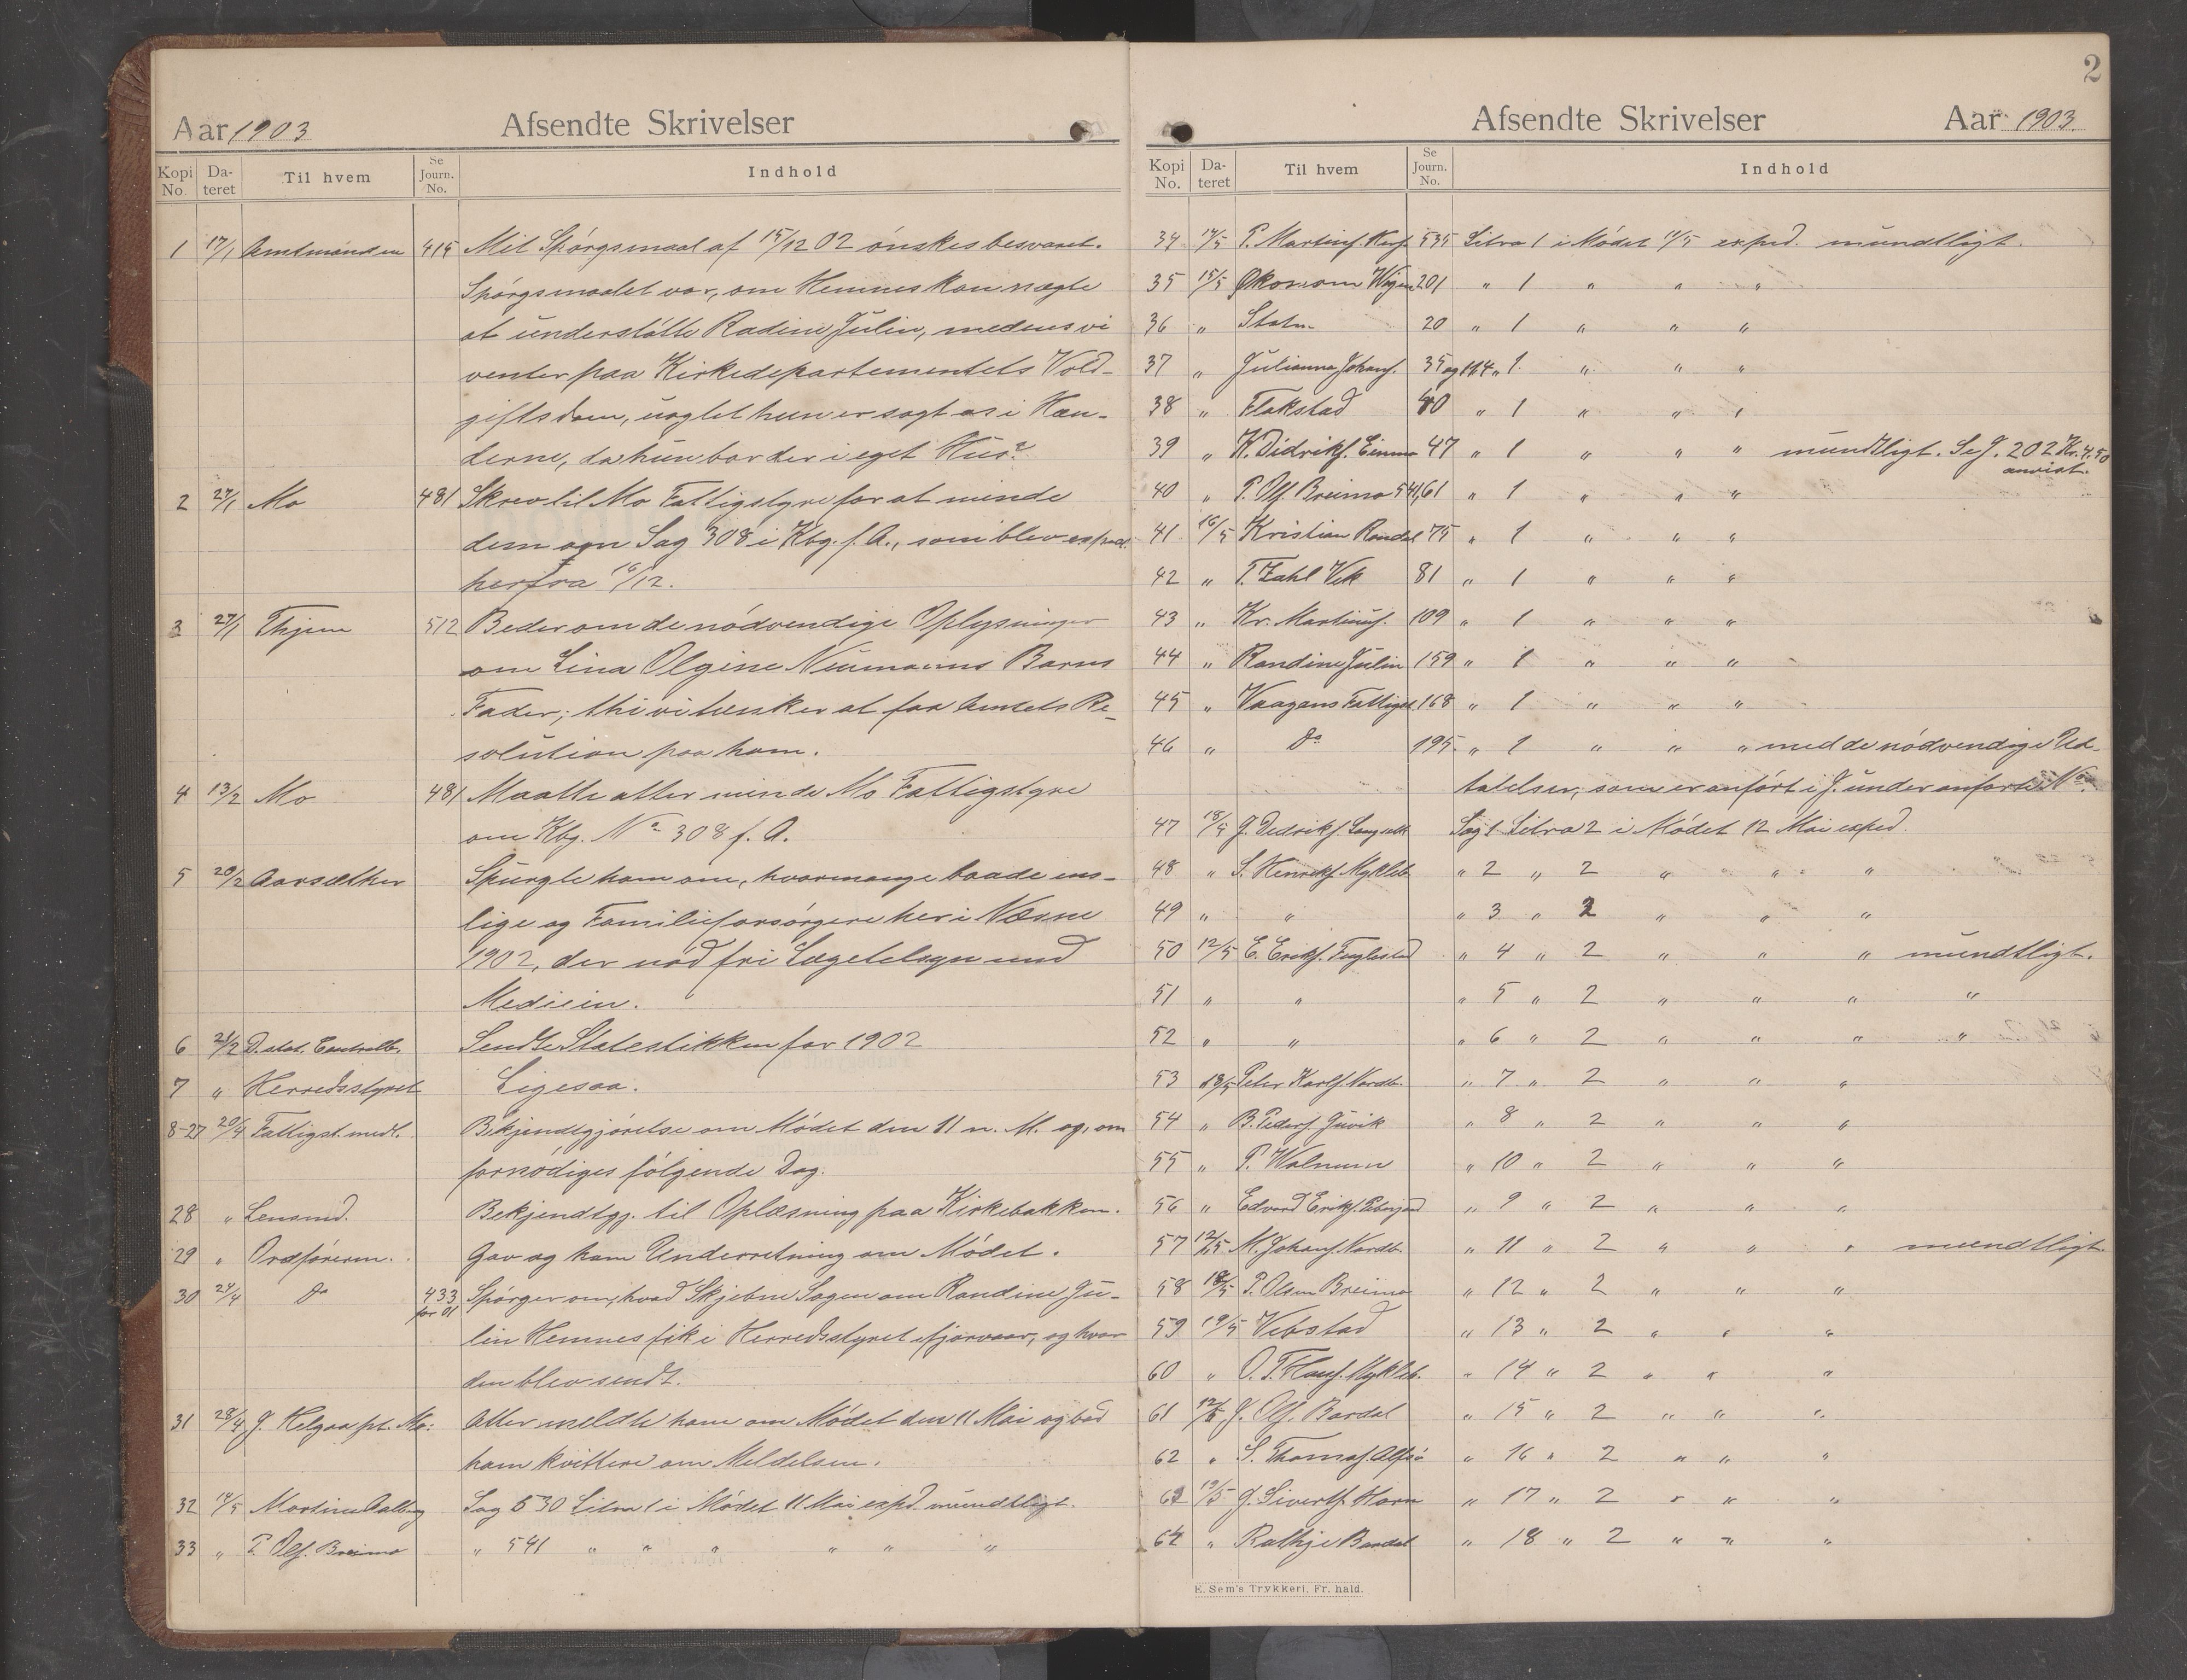 Aar 1903 Afsendte Skrivelser
Kopi No. Dateret Til hvem Se Journ. No. Indhold
1 17/1 Amtmanden 415 Mit Spörgsmaal af 15/12 02 önskes besvaret.
Spörgsmaalet var, om Hemnes kan nægte
at understötte Radine Julin, medens vi
venter paa Kirkedepartementets Vold-
giftsdom, uagtet hun er sagt os i Hæn-
derne, da hun bor der i eget Hus?
2 27/1 Mo 481 Skrev til Mo Fattigstyre for at minde
dem om Sag 308 i Kbg. f. A., som blev exped.
herfra 16/12.
3 27/1 Thjem 512 Beder om de nödvendige Oplysninger
om Lina Olgine Neumanns Barns
Fader; thi vi tænker at faa Amtets Re-
solution paa ham.
4 13/2 Mo 481 Maatte atter minde Mo Fattigstyre
om Kbg. No 308 f. A.
5 20/2 Aarsæther Spurgte ham om, hvormange baade ens-
lige og Familieforsörgere her i Næsne
1902, der nöd fri Lægetilsyn und
Medicin.
6 21/2 D. stat. Centralb. Sendte Statestikken for 1902
7 " Herredsstyret Ligesaa.
8-27 20/4 Fattigst. medl. Bekjendtgjörelse om Mödet den 11 n. M. og, om
fornödiges fölgende Dag.
28 " Lensmd. Bekjendtgj. til Oplæsning paa Kirkebakken.
29 " Ordföreren. Gav og ham Underretning om Mödet.
30 24/4 Do 433 for 01 Spörger om, hvad Skjebne Sagen om Randine Ju-
lin Hemnes fik i Herredsstyret ifjorvaar, og hvor
den blev sendt.
31 28/4 J. Helgaa pt. Mo: Atter meldte ham om Mödet den 11 Mai og bad
ham kvittere om Meldelsen.
32 14/5 Martine Aalberg Sag 530 Litra 1 i Mödet 11 Mai exped. mundtligt.
33 " P. Ols. Breimo " 541 " " " " " "
2
Afsendte Skrivelser Aar 1903
Kopi No. Dateret Til hvem Se Journ. No. Indhold
34 14/5 P. Martins. 535 Litra 1 i Mödet 11/5 exped. mundtligt.
35 15/5 Økonom 201 " 1 " " "
36 " Staten 20 " 1 " " "
37 " Julianna Johans. 35 og 164 " 1 " " "
38 " Flakstad 40 " 1 " " "
39 " K. Didriks. 47 " 1 " " " mundtligt. Se J. 202 Kr. 4.50
anvist.
40 " P. Ols. Breimo 541,61 " 1 " " "
41 16/5 Kristian 75 " 1 " " "
42 " P. Zahl Vik 81 " 1 " " "
43 " Kr. Martins. 109 " 1 " " "
44 " Randine Julin 159 " 1 " " "
45 " Vaagans Fattigst. 168 " 1 " " "
46 " Do 195 " 1 " " " med de nödvendige Ud-
talelser, som er anfört i J. under anförte No.
47 18/5 J. Dedriks. Sag 1 Litra 2 i Mödet 12 Mai exped.
48 " S. Henriks. Mykleb. " 2 " 2 " " "
49 " " " 3 " 2 " " "
50 12/5 E. Eriks. Fuglestad " 4 " 2 " " " mundtligt.
51 " " " 5 " 2 " " " "
52 " " " 6 " 2 " " " "
53 18/5 Peter Karls. Nordb. " 7 " 2 " " "
54 " B. Peders. " 8 " 2 " " "
55 " P. Walnum " 10 " 2 " " "
56 " Edvard Eriks. " 9 " 2 " " "
57 12/5 M. Johans. Nordb. " 11 " 2 " " " mundtligt.
58 18/5 P. Olsen Breimo " 12 " 2 " " "
59 19/5 Vebstad " 13 " 2 " " "
60 " O. P. Hans. Mykleb. " 14 " 2 " " "
61 12/5 J. Ols. Bardal " 15 " 2 " " "
62 " S. Thomas. " 16 " 2 " " "
63 19/5 J. Siverts. Horn " 17 " 2 " " "
64 " Rathje Bardal " 18 " 2 " " "
E. Sem's Trykkeri. Fr. hald.